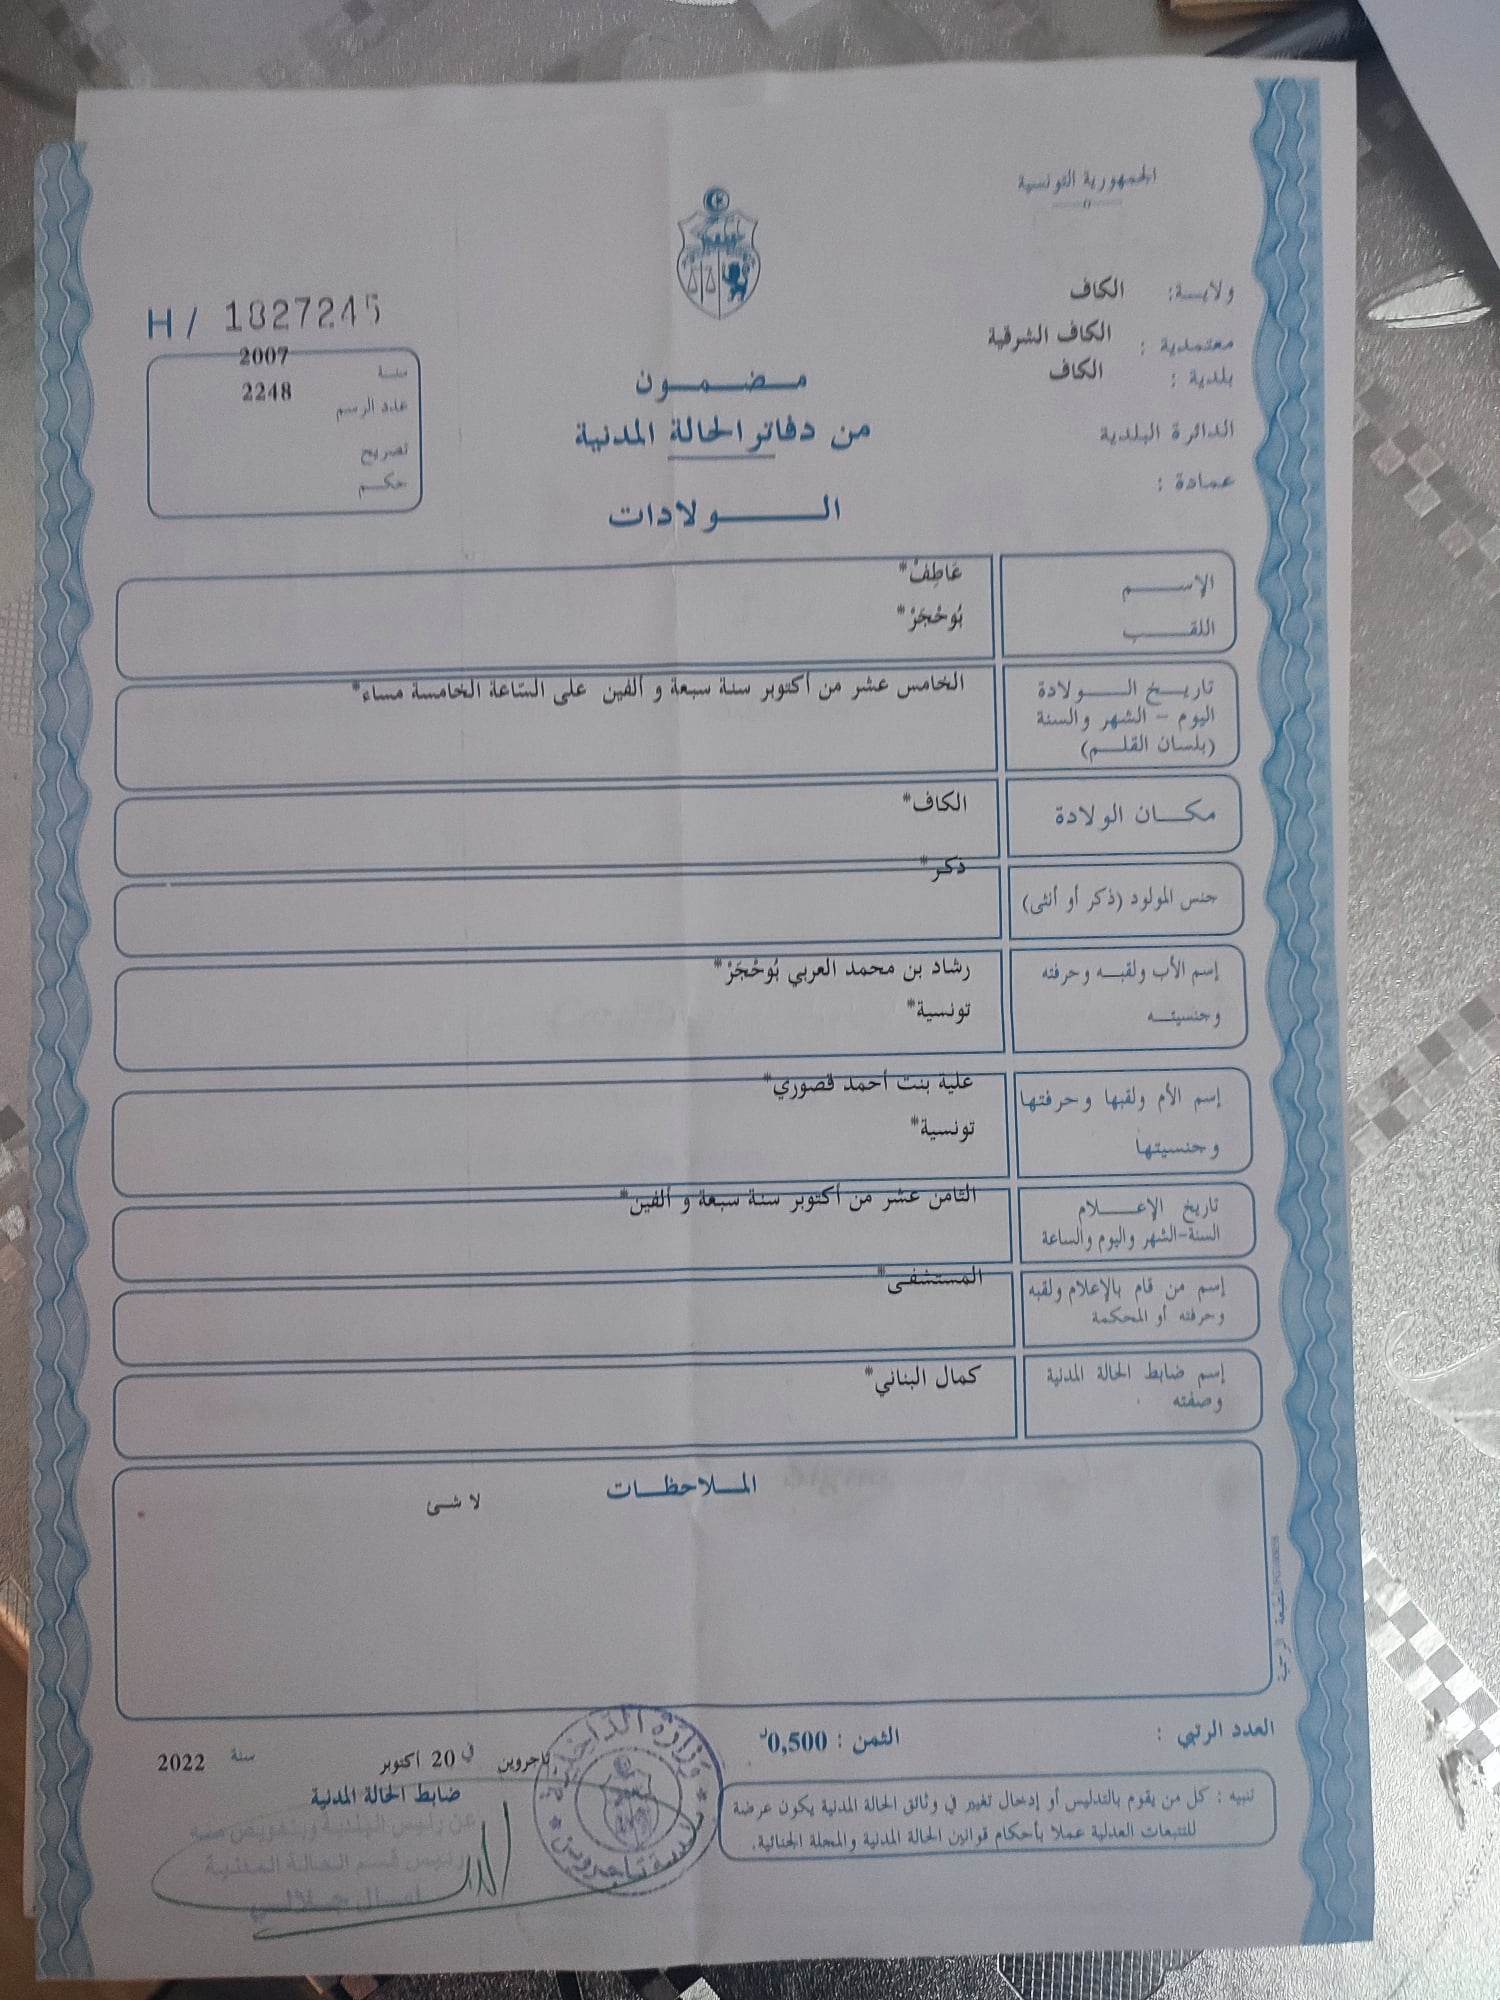 الجمهورية التونسية
ولايــة: الكاف
معتمدية : الكاف الشرقية
بلدية : الكاف
الدائرة البلدية
عمادة :
H / 1827245
سنة 2007
عدد الرسم 2248
تصريح
حكم
مـضـمـون
من دفاتر الحالة المدنية
الـولادات
الإسـم عَاطِفْ*
اللقـب بُوحْجَرْ*
تاريـخ الـولادة الخامس عشر من أكتوبر سنة سبعة و ألفين على السّاعة الخامسة مساء*
اليوم - الشهر والسنة
(بلسان القلـم)
مكـان الولادة الكاف*
جنس المولود (ذكر أو أنثى) ذكر*
إسم الأب ولقبـه وحرفته رشاد بن محمد العربي بُوحْجَرْ*
وجنسيتـه تونسية*
إسم الأم ولقبها وحرفتها علية بنت أحمد قصوري*
وجنسيتها تونسية*
تاريخ الإعـلام الثامن عشر من أكتوبر سنة سبعة و ألفين*
السنة-الشهر واليوم والساعة
إسم من قام بالإعلام ولقبه المستشفى*
وحرفته أو المحكمة
إسم ضابط الحالة المدنية كمال البناني*
وصفته
المـلاحظـات
لا شئ
المطبعة الرسمية
العدد الرتبي :
الثمن : 0,500د
تاجروين في 20 أكتوبر سنة 2022
ضابط الحالة المدنية
عن رئيس البلدية وبتفويض منه
رئيس قسم الحالة المدنية
وزارة الداخلية
تاجروين
تنبيه : كل من يقوم بالتدليس أو إدخال تغيير في وثائق الحالة المدنية يكون عرضة
للتتبعات العدلية عملا بأحكام قوانين الحالة المدنية والمجلة الجنائية.